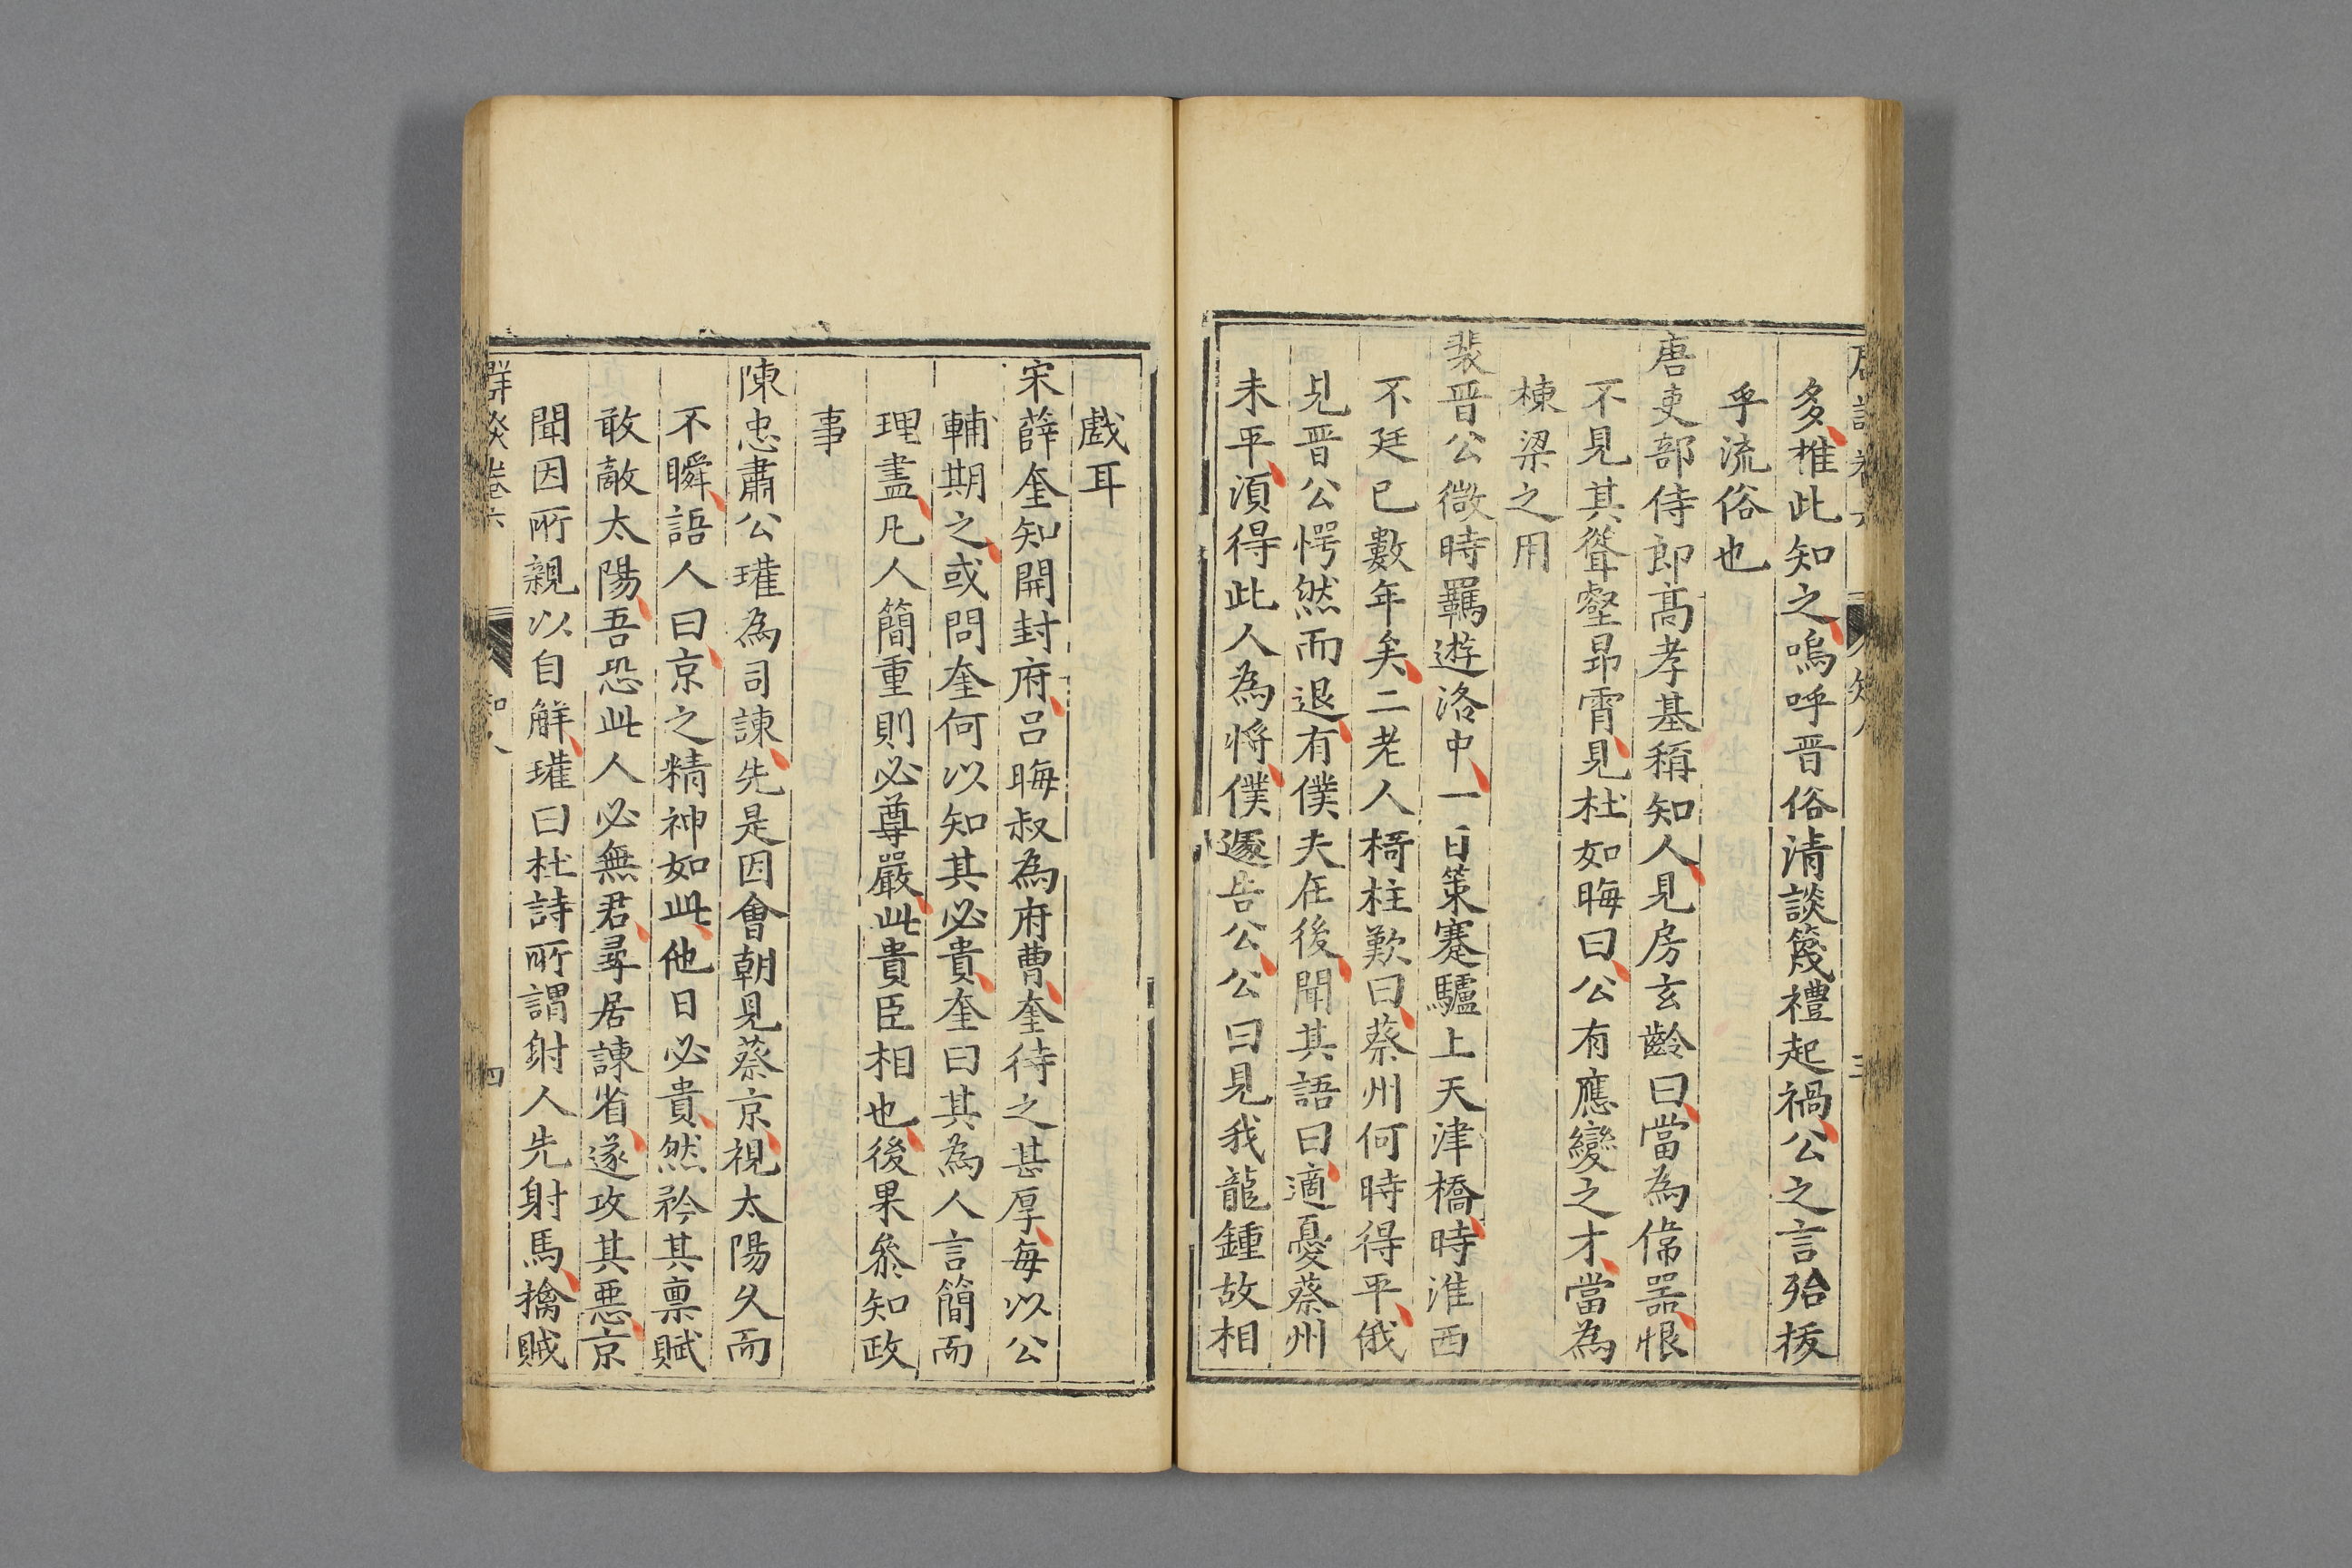 多推此知之嗚呼晋俗清談篾禮起禍公之言殆拔
乎流俗也
唐吏部侍郎高孝基稱知人見房玄齡曰當為偉噐恨
不見其聳壑昂霄見杜如晦曰公有應變之才當為
棟梁之用
裴晋公微時羈遊洛中一日策蹇驢上天津橋時淮西
不廷已數年矣二老人𠋣柱歎曰蔡州何時得平俄
見晋公愕然而退有僕夫在後聞其語曰適憂蔡州
未平湏得此人為將僕遽告公公曰見我龍鍾故相
戲耳
宋薛奎知開封府吕晦叔為府曹奎待之甚厚每以公
輔期之或問奎何以知其必貴奎曰其為人言簡而
理盡凡人簡重則必尊嚴此貴臣相也後果叅知政
事
陳忠肅公瓘為司諫先是因會朝見蔡京視太陽久而
不瞬語人曰京之精神如此他日必貴然矜其禀賦
敢敵太陽吾恐此人必無君尋居諫省遂攻其惡京
聞因所親以自解瓘曰杜詩所謂射人先射馬擒賊
群談卷六 知人 四